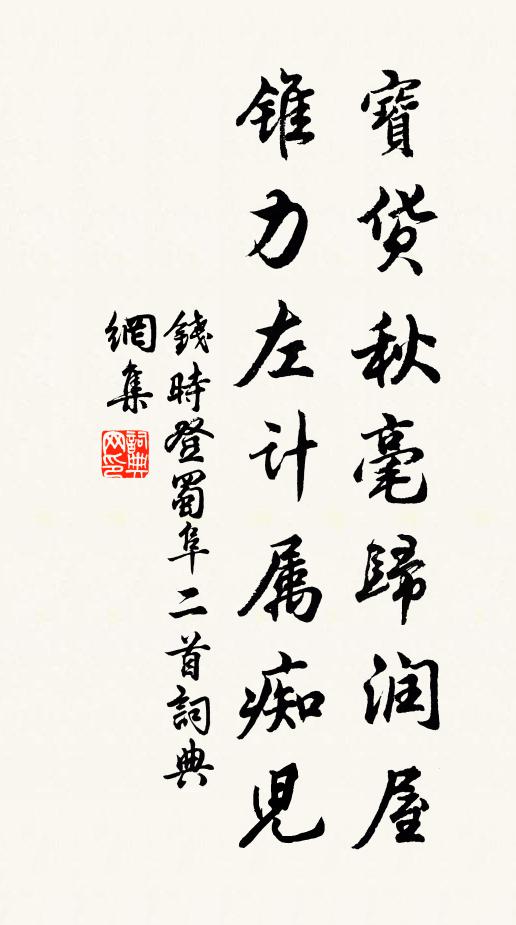 寶貨秋毫歸润屋
錐力左计属痴児
錢時登蜀阜二首詞典
網集
詞典网印